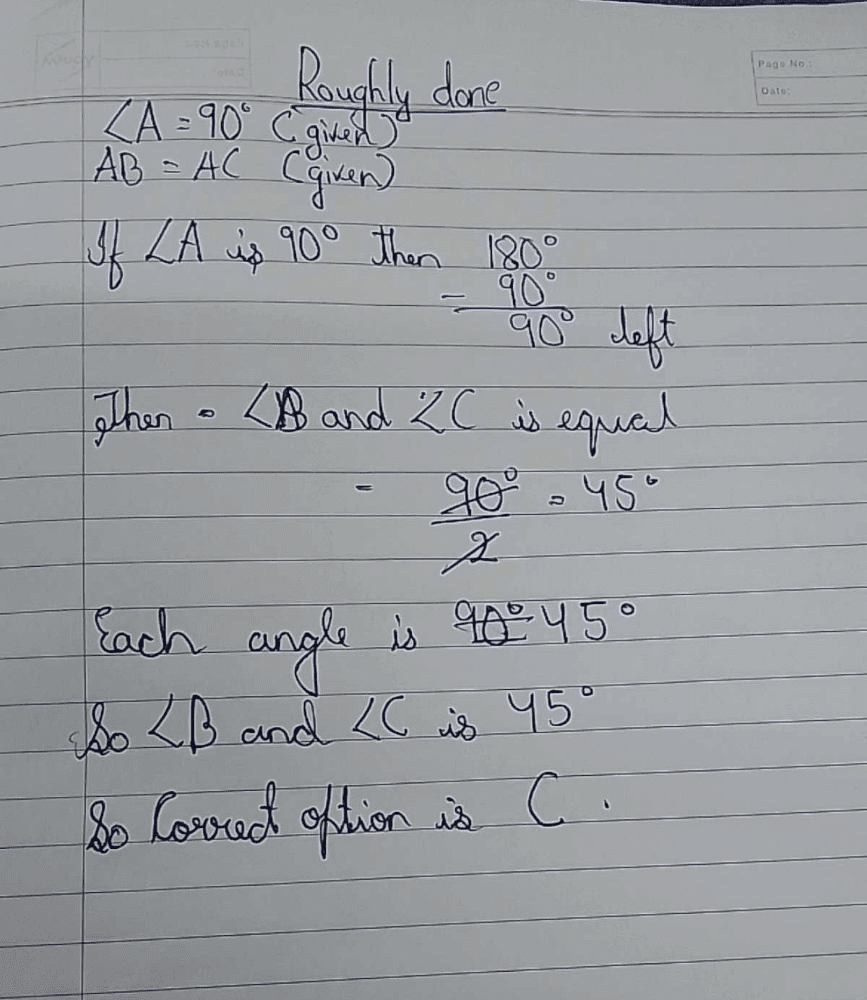 Page No.:
Date:
Roughly done
∠A = 90° (given)
AB = AC (given)
If ∠A is 90° then 180°
- 90°
90° left
Then = ∠B and ∠C is equal
= 90°/2 = 45°
Each angle is 90° 45°
So ∠B and ∠C is 45°
So Correct option is C.